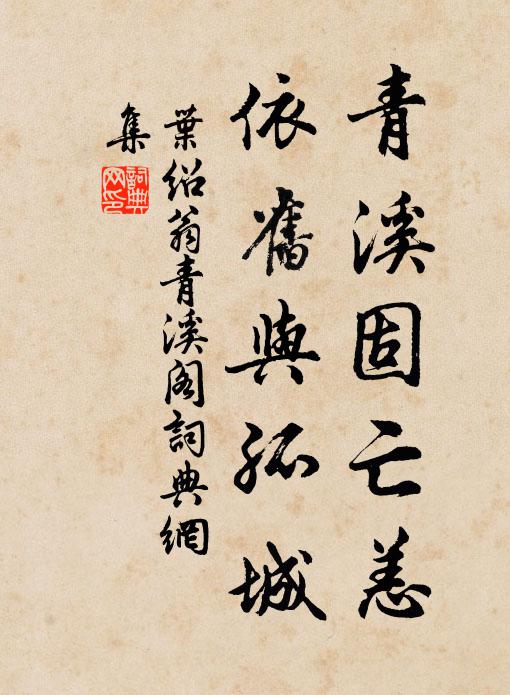 青溪固亡恙
依舊與孤城
葉紹翁青溪閣詞典網
集
詞典
网印